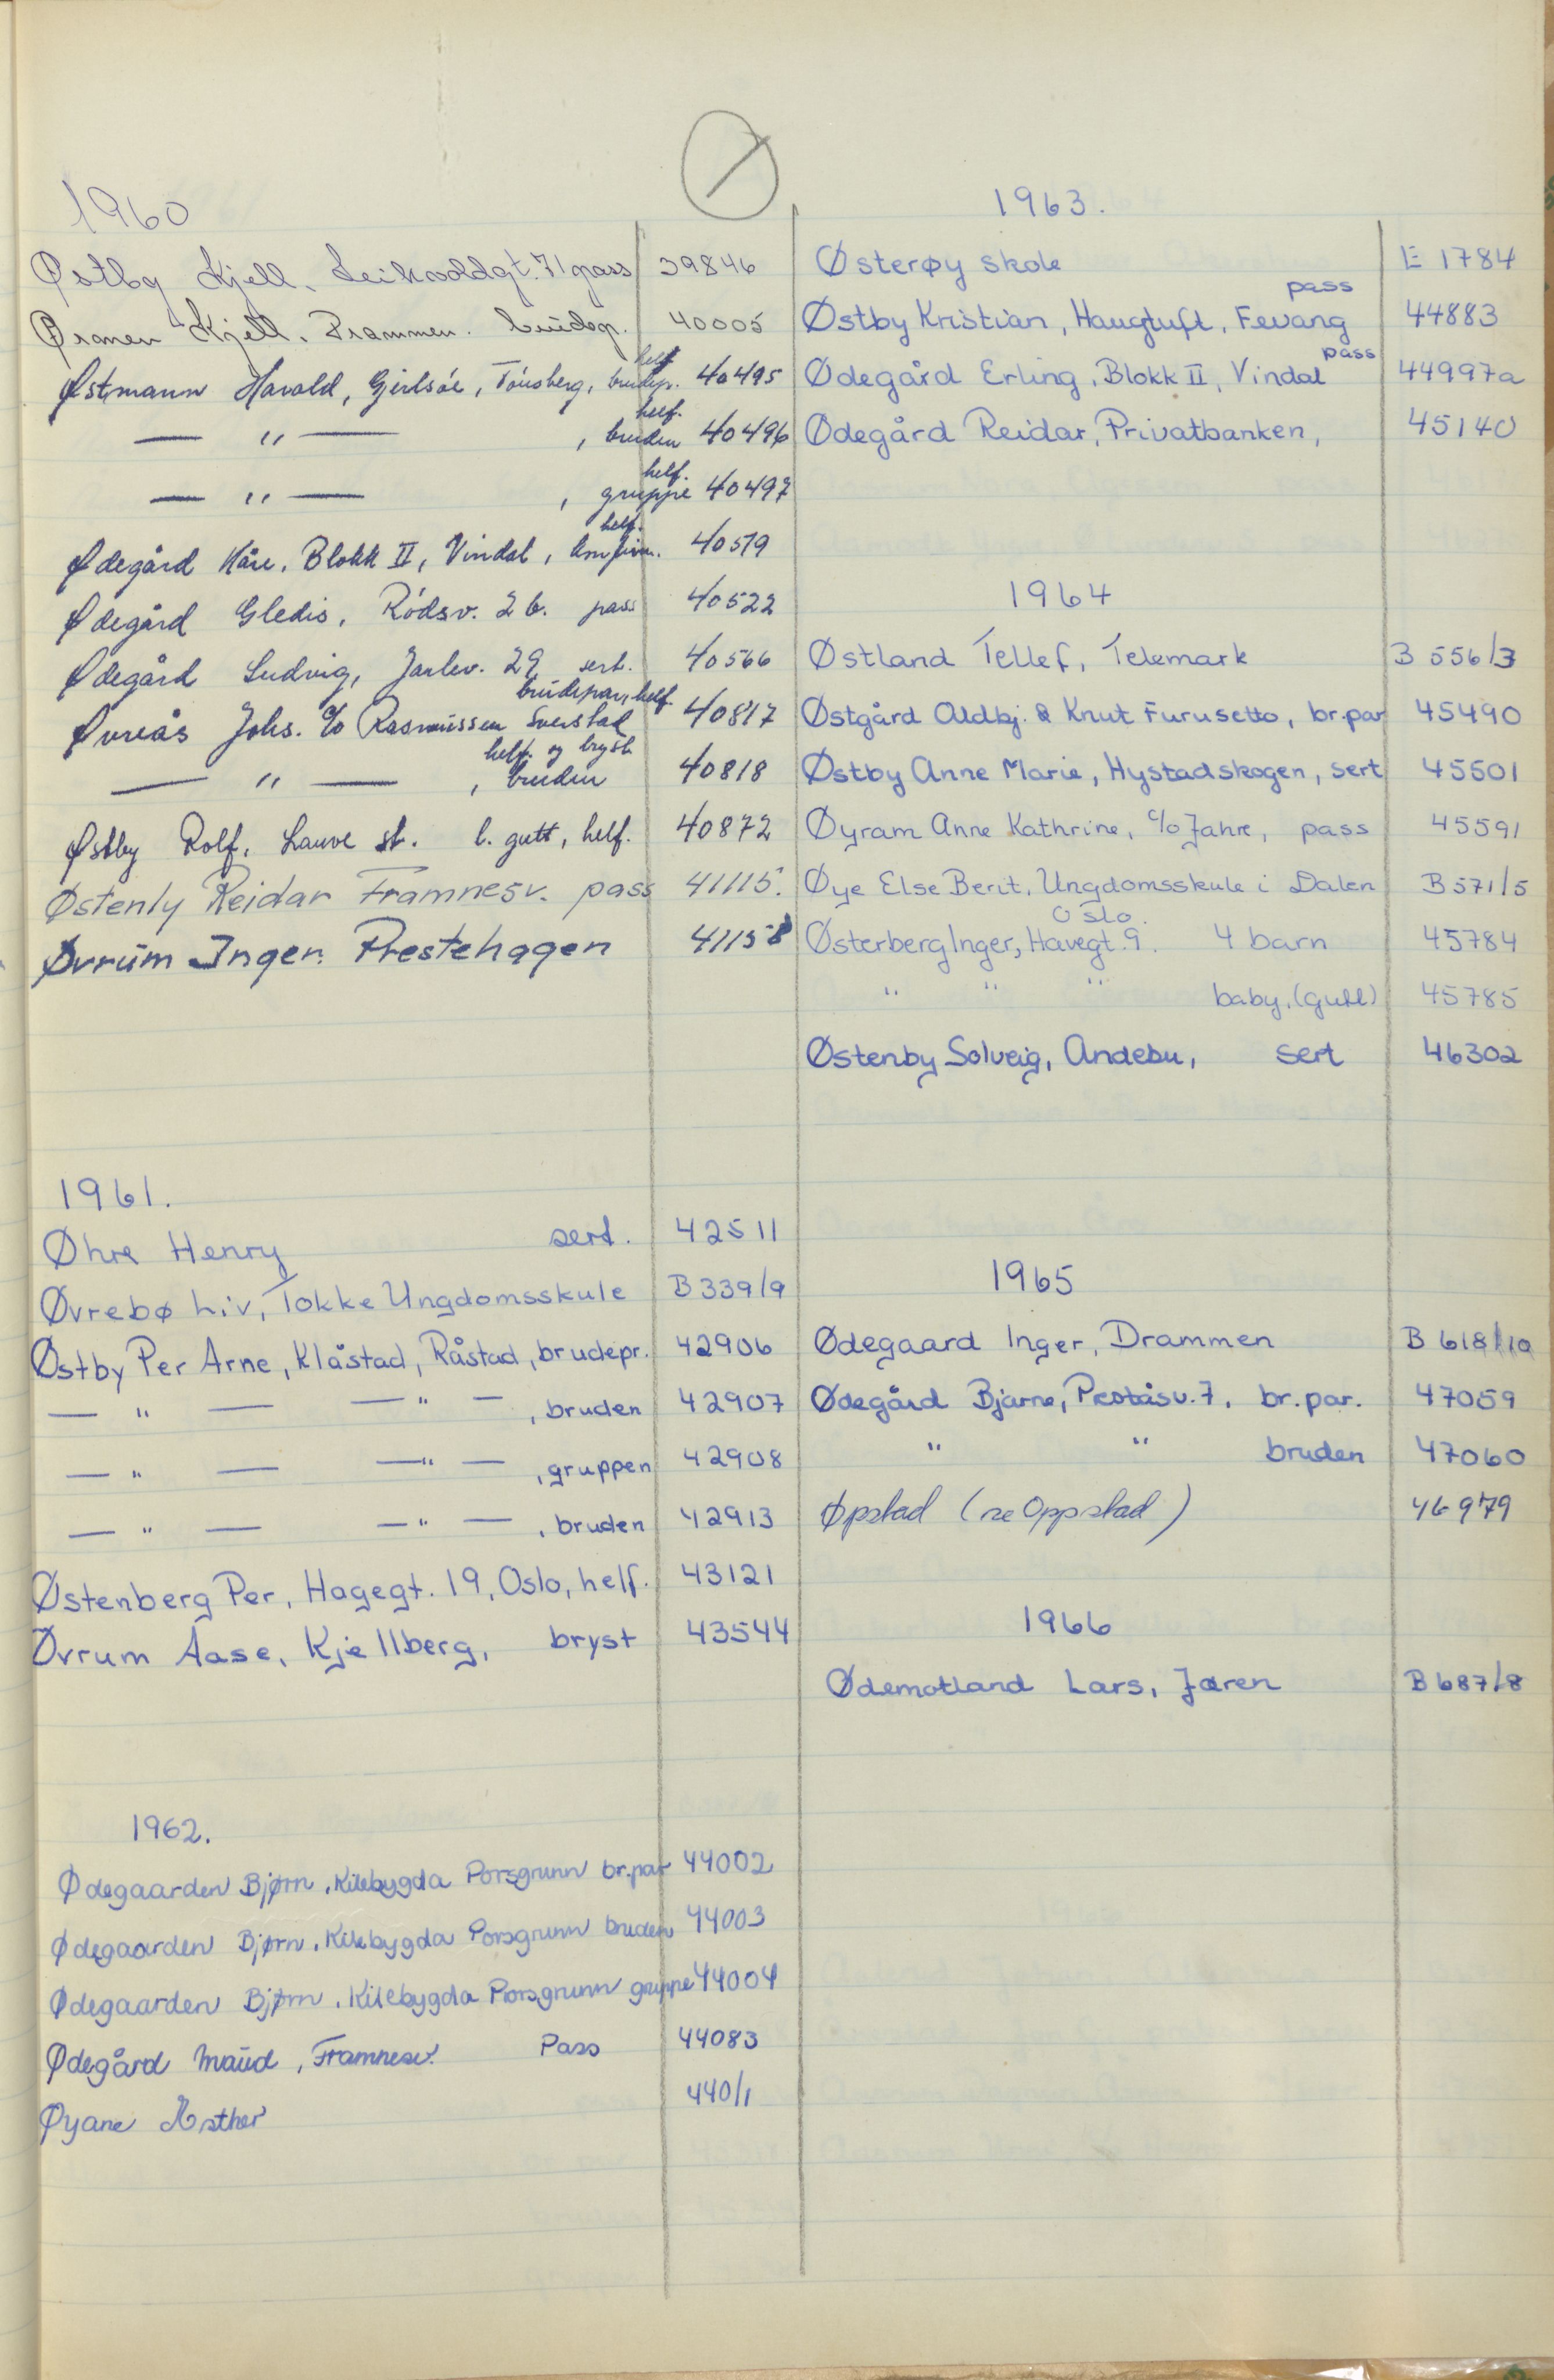 Ø
1960
Østby Kjell. Leikvoldgt. 71 pass 39846
Kjell. brudegr. 40005
Østmann Harold, Tönsberg, brudepr. helf. 40495
— " — , bruden helf. 40496
— " — , gruppe helf. 40497
Ødegård Kåre, Blokk II, Vindal, konfirm. helf. 40519
Ødegård Gledis, Rödsv. 26. pass 40522
Ødegård Ludvig, Jarlev. 29 sert. 40566
Øvreås Johs. c/o Rasmussen brudepar, helf. 40817
— " — , bruden helf. og bryst 40818
Østby Rolf, Lauve st. l. gutt, helf. 40872
Østenly Reidar Framnesv. pass 41115.
Øvrüm Inger. Prestehagen 41158
1961.
Øhre Henry sert. 42511
Øvrebø Liv, Tokke Ungdomsskule B 339/9
Østby Per Arne, Klåstad, Råstad, brudepr. 42906
— " — — " — , bruden 42907
— " — — " — , gruppen 42908
— " — — " — , bruden 42913
Østenberg Per, Hagegt. 19, Oslo, helf. 43121
Øvrum Aase, Kjellberg, bryst 43544
1962.
Ødegaarden Bjørn, Kilebygda Porsgrunn br.par 44002
Ødegaarden Bjørn, Kilebygda Porsgrunn bruden 44003
Ødegaarden Bjørn, Kilebygda Porsgrunn gruppe 44004
Ødegård Maud, Framnesv. Pass 44083
Øyane Esther 440/1
1963.
Østerøy skole E 1784
Østby Kristian, Haugtuft, Fevang pass 44883
Ødegård Erling, Blokk II, Vindal pass 44997a
Ødegård Reidar, Privatbanken, 45140
1964
Østland Tellef, Telemark B 556/3
Østgård Oldbj. & Knut Furusetto, br.par 45490
Østby Anne Marie, Hystadskogen, sert 45501
Øyram Anne Kathrine, c/o Jahre, pass 45591
Øye Else Berit, Ungdomsskule i Dalen B 571/5
Oslo.
Østerberg Inger, Havegt. 9. 4 barn 45784
" " " baby, (gutt) 45785
Østenby Solveig, Andebu, sert 46302
1965
Ødegaard Inger, Drammen B 618/10
Ødegård Bjarne, Preståsv. 7, br.par. 47059
" " bruden 47060
Øpstad (se Oppstad) 46979
1966
Ødemotland Lars, Jæren B 687/8